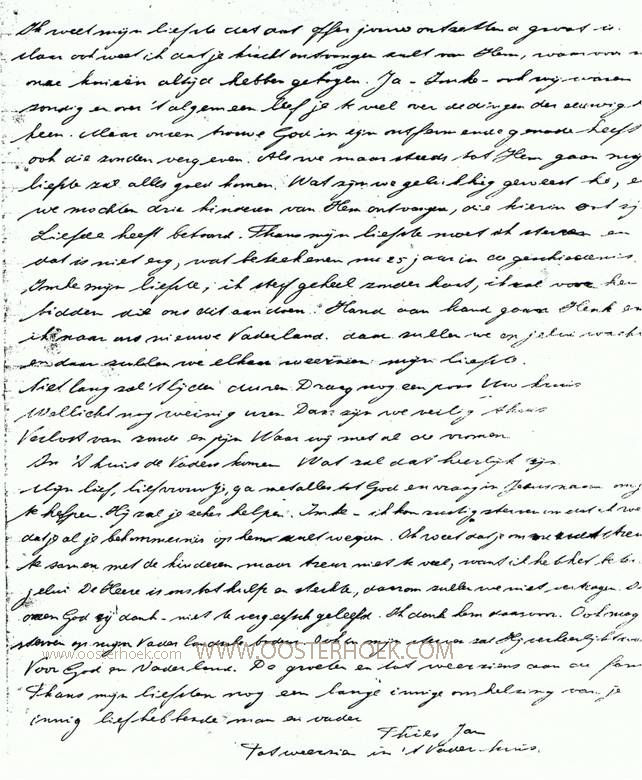 Ik weet mijn liefste dat dat offer jouw ontzettend groot is.
Maar ook weet ik dat je kracht ontvangen zult van Hem, waarvoor w
onze knieën altijd hebben gebogen. Ja - Imke - ook wij waren
zondig en over 't algemeen leef je te veel over de dingen der eeuwig
heen. Maar onzen trouwe God in zijn ontfermende genade heeft
ook die zonden vergeven. Als we maar steeds tot Hem gaan mijn
liefste zal alles goed komen. Wat zijn we gelukkig geweest he, e
we mochten drie kinderen van Hem ontvangen, die hierin ons zij
Liefde heeft betoond. Thans mijn liefste moet ik sterven en
dat is niet erg, wat beteekenen nu 25 jaar in de geschiedenis.
Imke mijn liefste, ik sterf geheel zonder haat, ik zal voor hen
bidden die ons dit aandoen. Hand aan hand gaan Henk en
ik naar ons nieuwe Vaderland. daar zullen we op jelui wacht
en daar zullen we elkaar weerzien mijn liefste.
Niet lang zal 't lijden duren Draag nog een poos Uw kruis
Wellicht nog weinig uren Dan zijn we veilig thuis
Verlost van zonde en pijn Waar wij met al de vromen
In 't huis de Vaders komen Wat zal dat heerlijk zijn
Mijn lief, lief vrouwtje, ga met alles tot God en vraag in Jezus naam om j
te helpen. Hij zal je zeker helpen. Imke - ik kan rustig sterven nu ik w
dat je al je bekommernis op hem zult werpen. Ik weet dat je om treu
te samen met de kinderen maar treur niet te veel, want ik heb het be
jelui De Heere is ons tot hulp en sterkte, daarom zullen we niet vertragen.
onzen God zij dank - niet te vergeefsch geleefd. Ik dank hem daarvoor. Ook mag
sterven op mijn Vader land Ook in mijn sterven zal Hij verheerlijkt
www.oosterhoek.com WWW.OOSTERHOEK.COM
Voor God en Vaderland. De groeten en tot weerziens aan de fam
Thans mijn liefsten nog een lange innige omhelzing van je
innig liefhebbende man en vader
Thies Jan
Tot weerzien in 't Vader-huis.